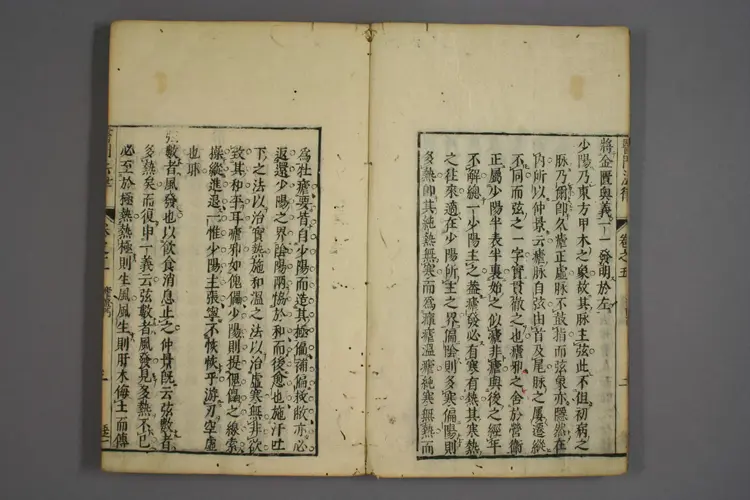 醫門法律 卷之五
將金匱奧義一一發明於左
少陽乃東方甲木之象故其脉主弦此不但初病之
脉乃爾卽久瘧正虛脉不鼓指而弦象亦隱然在
內所以仲景云瘧脉自弦由首及尾脉之屢遷縱
不同而弦之一字實貫徹之也瘧邪之舍於營衛
正屬少陽半表半裏始之似瘧非瘧與後之經年
不解總一少陽主之葢瘧發必有寒有熱其寒熱
之往來適在少陽所主之界偏陰則多寒偏陽則
多熱卽其純熱無寒而爲癉瘧溫瘧純寒無熱而
爲牡瘧要皆自少陽而造其極偏補偏救敝亦必
返還少陽之界陰陽兩協於和而後愈也施汗吐
下之法以治實熱施和溫之法以治虛寒無非欲
致其和平耳瘧邪如傀儡少陽則提傀儡之線索
操縱進退一惟少陽主張寧不恢恢乎游刃空虛
也耶
弦數者風發也以飲食消息止之仲景旣云弦數者
多熱矣而復申一義云弦數者風發見多熱不已
必至於極熱熱極則生風風生則肝木侮土而傳